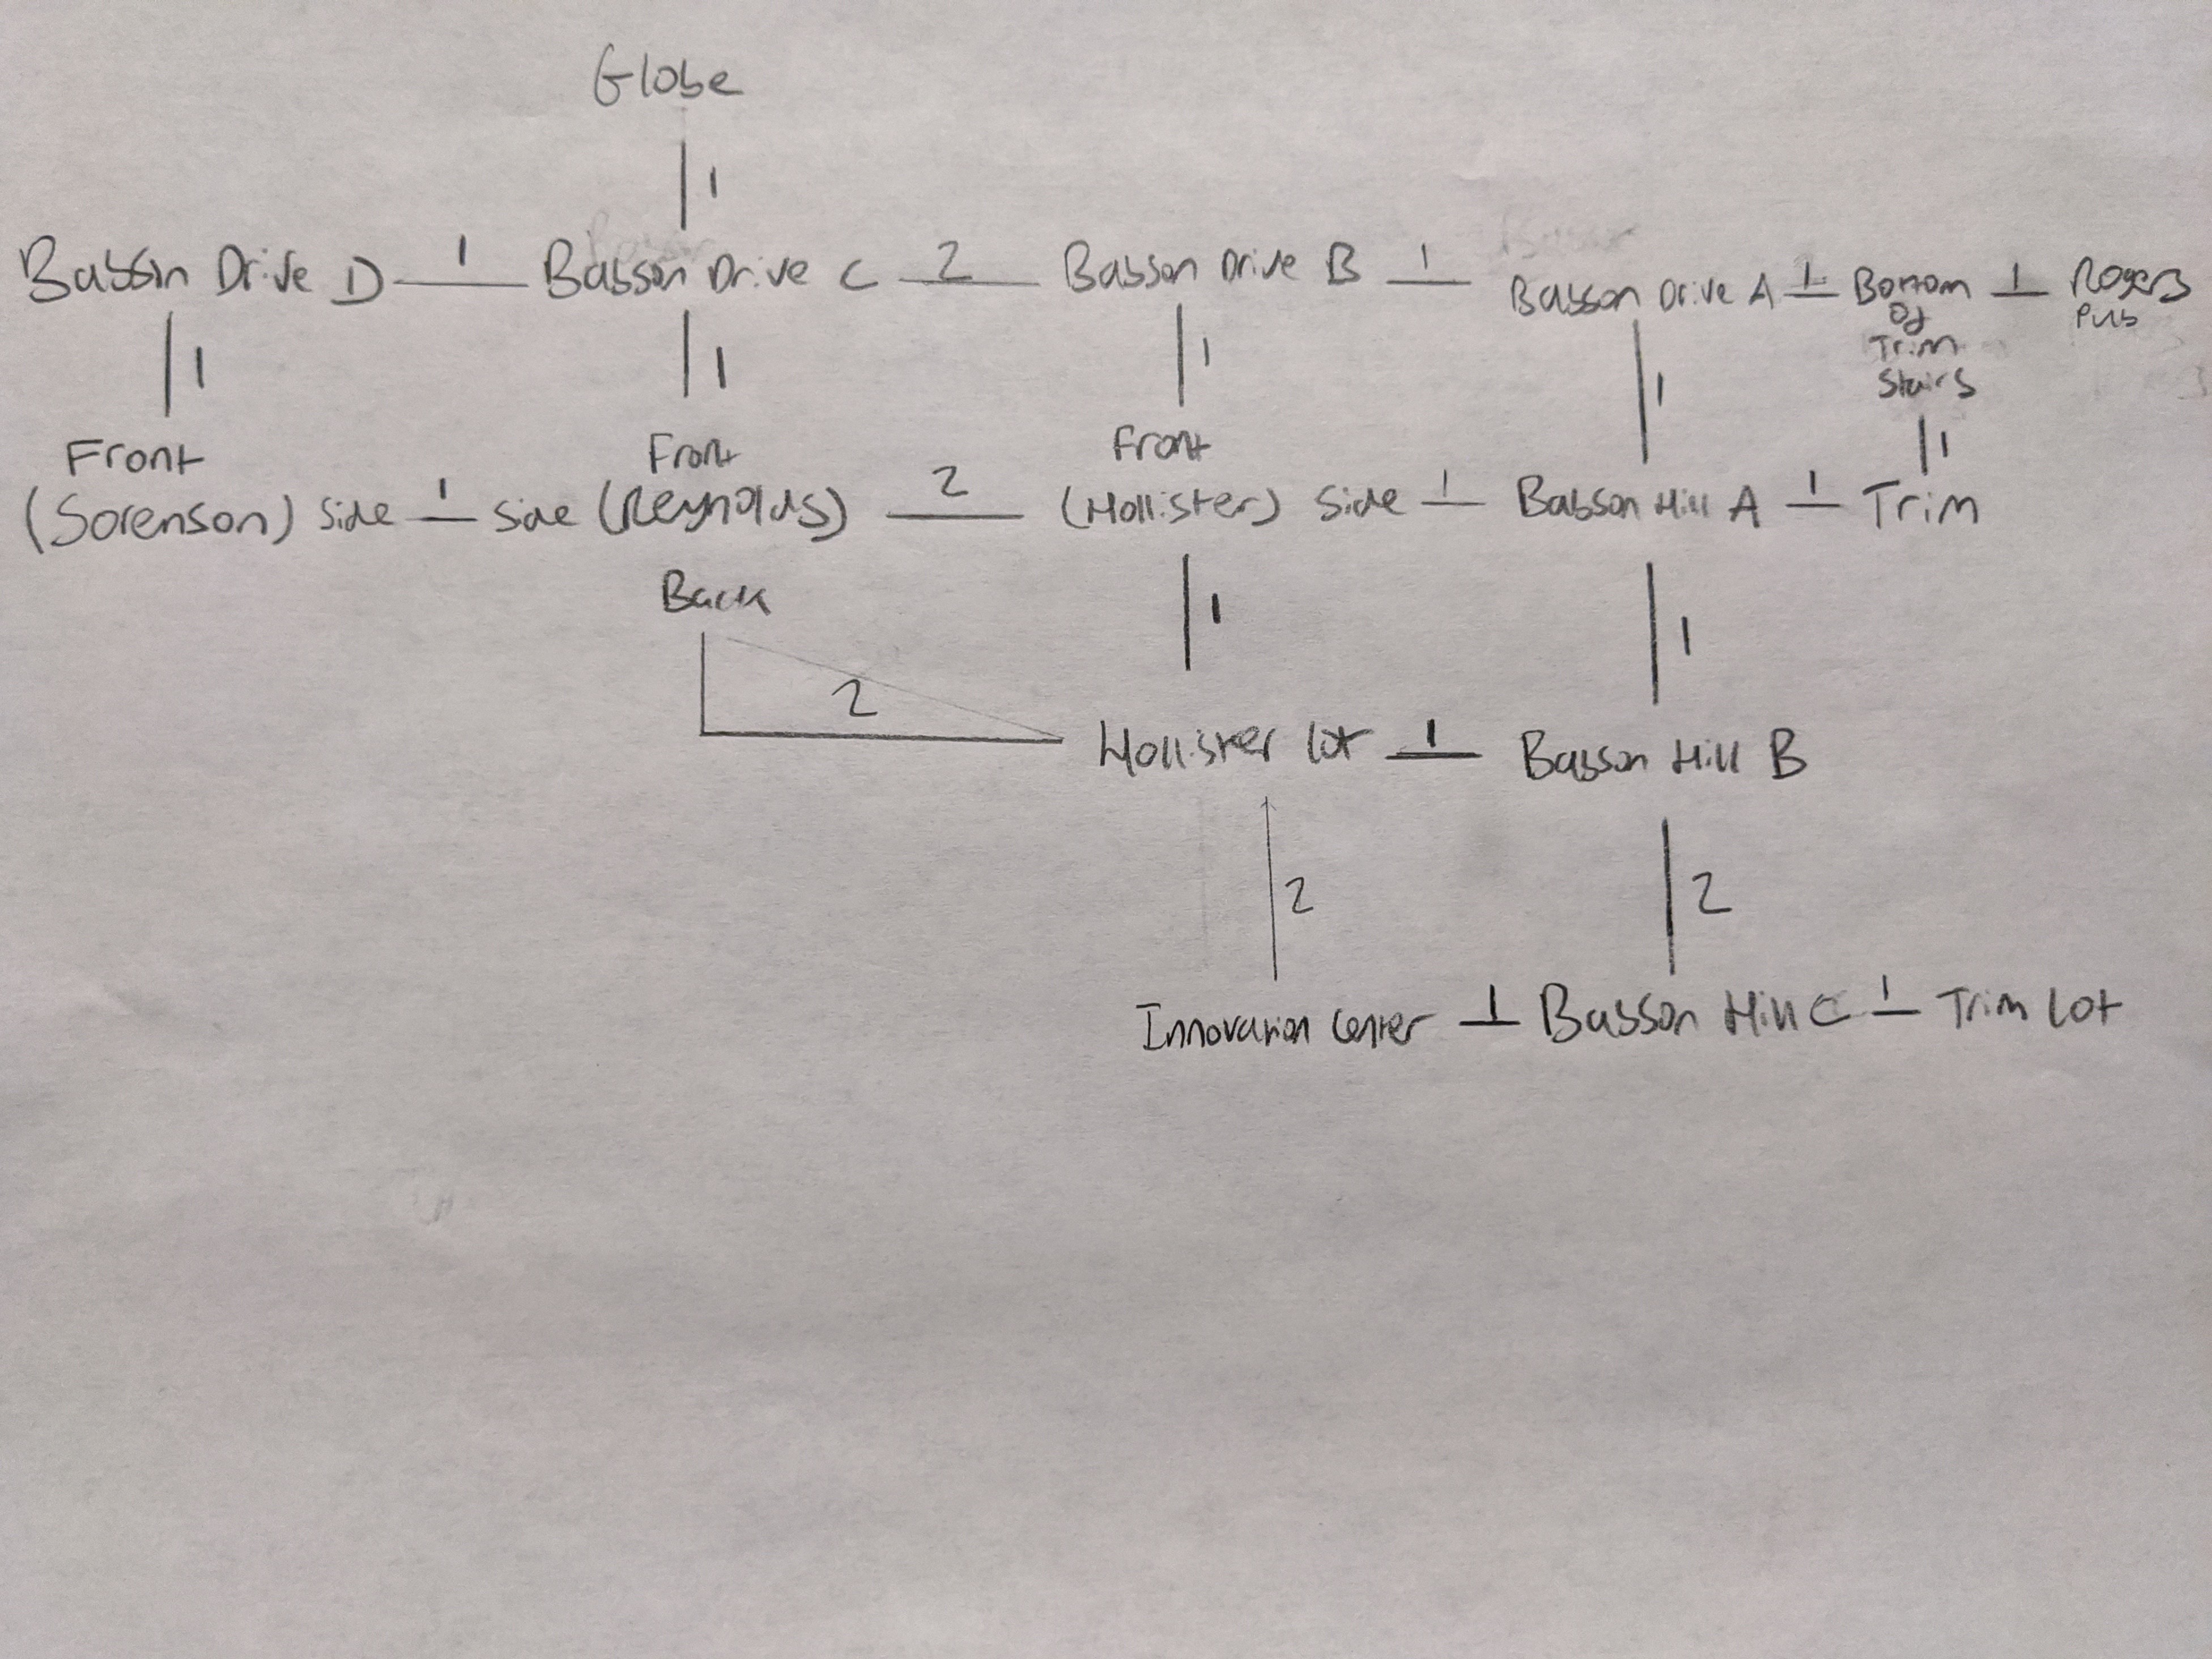 Globe
1
Babson Drive D 1 Babson Drive C 2 Babson Drive B 1 Babson Drive A 1 Bottom 1 Rogers
Of Pub
Trim
Stairs
1 1 1 1 1
Front Front Front
(Sorenson) side 1 side (Reynolds) 2 (Hollister) Side 1 Babson Hill A 1 Trim
Back
1 1
2
Hollister lot 1 Babson Hill B
2 2
Innovation Center 1 Babson Hill C 1 Trim Lot